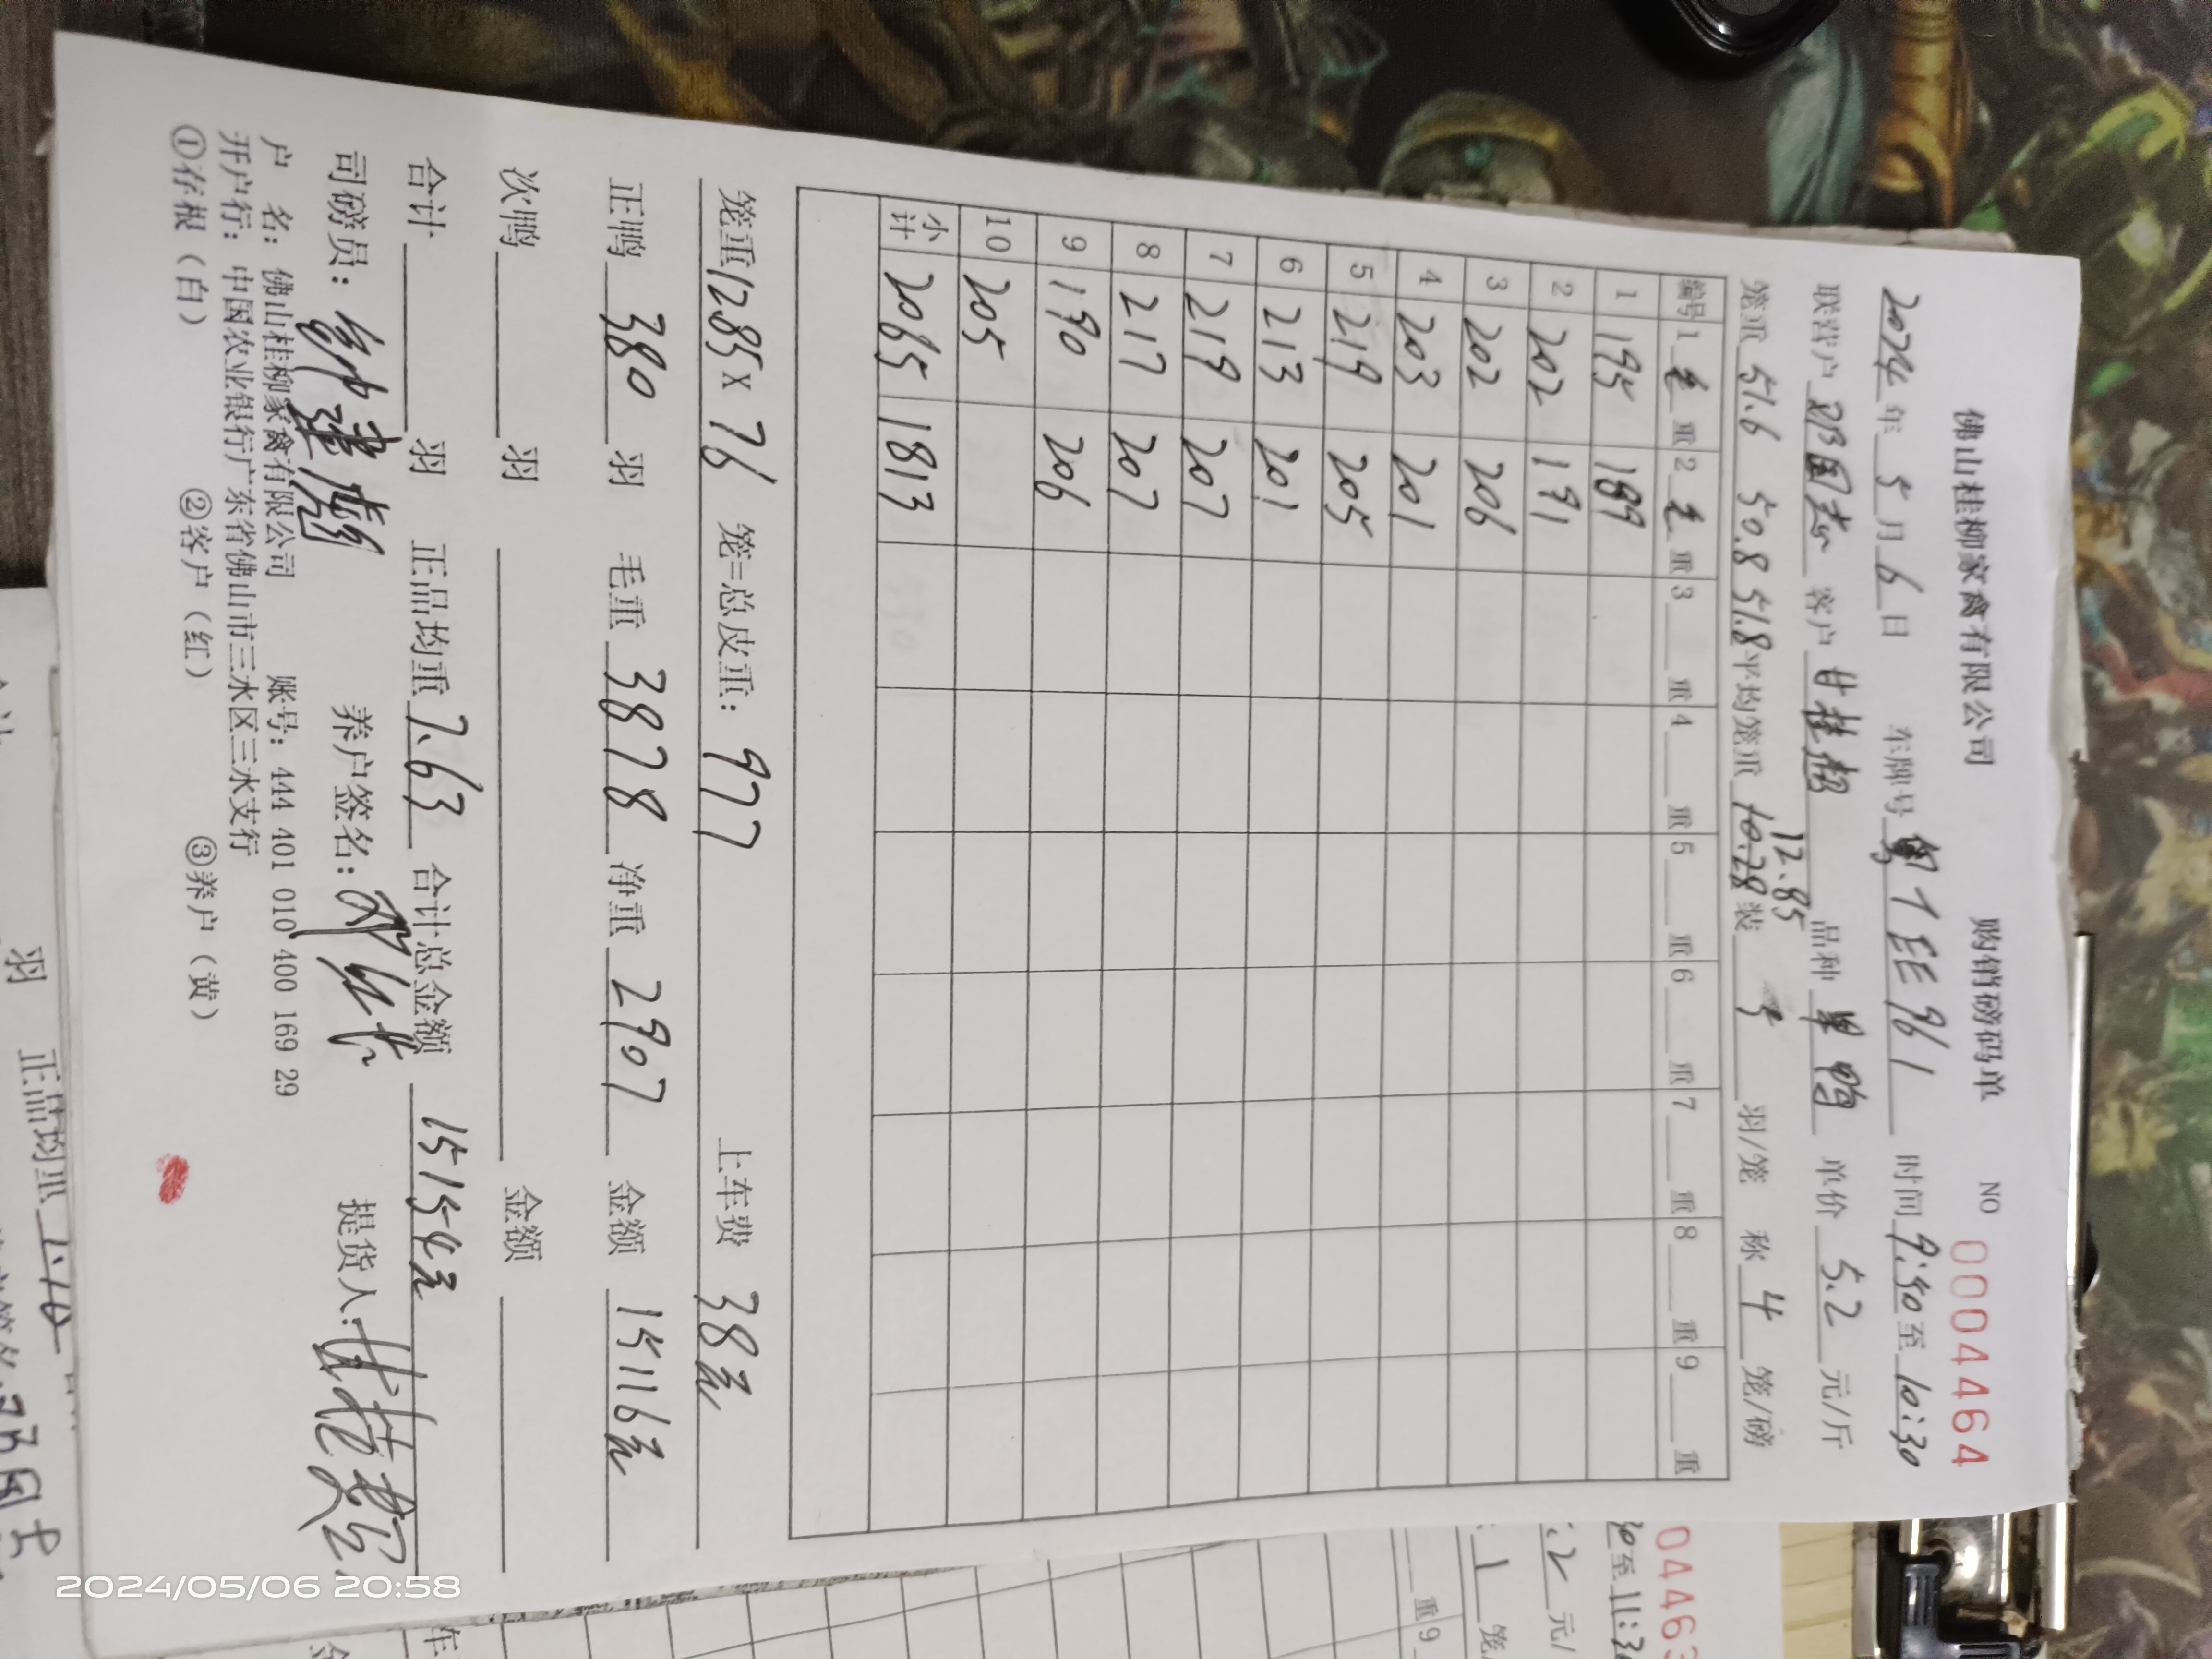 佛山桂柳家禽有限公司 购销磅码单 NO 0004464
2024年 5月 6日 车牌号 EE961 时间 9:50至 10:30
联营户 邓国志 客户 甘桂超 品种 单鸭 单价 5.2 元/斤
笼重 51.6 50.8 51.8 平均笼重 10.28 12.85 装 5 羽/笼 称 4 笼/磅
编号 1 毛 重 2 毛 重 3 重 4 重 5 重 6 重 7 重 8 重 9 重
1 195 189
2 202 191
3 202 206
4 203 201
5 219 205
6 213 201
7 219 207
8 217 207
9 190 206
10 205
小计 2065 1813
笼重 1285 x 76 笼=总皮重: 977 上车费 38元
正鸭 380 羽 毛重 3878 净重 2907 金额 15116元
次鸭 羽 金额
合计 羽 正品均重 7.63 合计总金额 15154元
司磅员: 养户签名: 提货人:
户 名: 佛山桂柳家禽有限公司 账号: 444 401 010 400 169 29
开户行: 中国农业银行广东省佛山市三水区三水支行
①存根(白) ②客户(红) ③养户(黄)
2024/05/06 20:58
04463
30至11:30
.2 元/
1 笼
重9
羽 正品均重